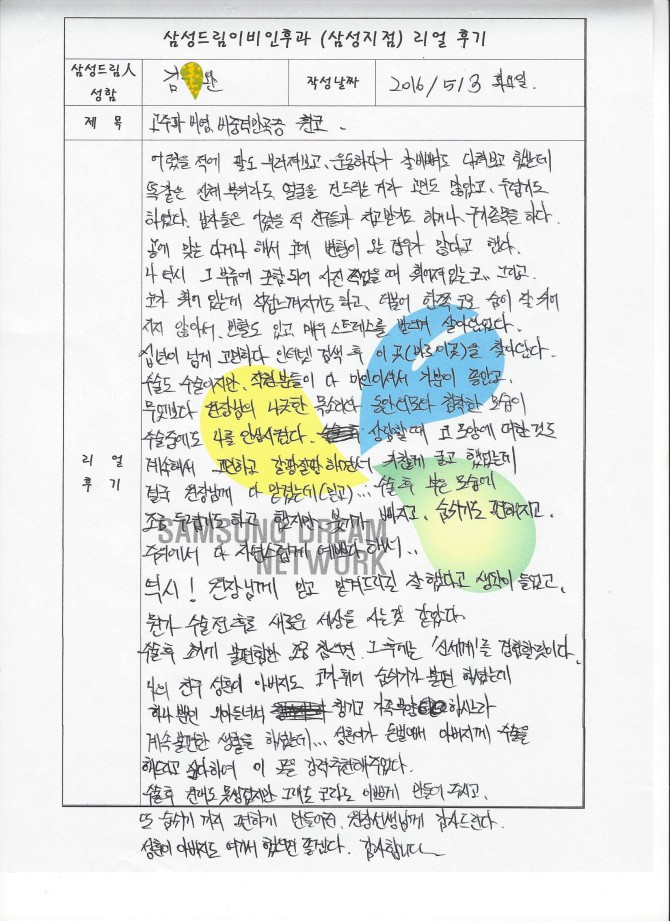 삼성드림이비인후과 (삼성지점) 리얼 후기
삼성드림人 성함
김 완
작성날짜
2016/5/3 화요일.
제 목
고주파 비염, 비중격만곡증, 휜코.
리얼 후기
어렸을 적에 팔도 부러져보고, 운동하다가 잘못해서 다쳐보고 했는데
똑같은 신체 부위라도 얼굴을 건드리는 거라 고민도 많았고, 두렵기도
하였다. 남자들은 어렸을 적 친구들과 치고받기도 하거나, 구기종목을 하다
공에 맞는다거나 해서 코에 변형이 오는 경우가 많다고 한다.
나 역시 그 부류에 포함되어 사진 찍었을 때 휘어져있는 코.. 그리고
코가 휘어 있는게 직접 느껴지기도 하고, 더불어 한쪽 코로 숨이 잘 쉬어
지지 않아서, 비염도 있고 매우 스트레스를 받으며 살아왔었다.
십년이 넘게 고민하다 인터넷 검색 후 이 곳(바로 이곳)을 찾아왔다.
수술도 수술이지만, 직원분들이 다 미인이셔서 기분이 좋았고
무엇보다 원장님의 나긋한 목소리와 동안외모와 침착한 모습이
수술중에도 나를 안심시켰다. 상담할때 코 모양에 대한 것도
계속해서 고민하고 갈팡질팡 하면서 귀찮게 굴고 했었는데
결국 원장님께 다 맡겼는데(믿고)... 수술 후 부은 모습에
조금 두렵기도 하고 했지만, 붓기가 빠지고, 숨쉬기도 편해지고,
주위에서 다 자연스럽게 예쁘다 해서..
역시! 원장님께 믿고 맡겨드리길 잘 했다고 생각이 들었고,
뭔가 수술 전·후로 새로운 세상을 사는 것 같았다.
수술후 초기에 불편함만 조금 참으면 그 후에는 '신세계'를 경험할것이다.
나의 친구 성훈이 아버지도 코가 휘어 숨쉬기가 불편하셨는데
하나뿐인 외아들녀석 챙기고 가족부양 하시느라
계속 불편한 생활을 하셨는데... 성훈이가 돈 벌어서 아버지께 수술을
해드리고 싶다하여 이 곳을 강력추천해주었다.
수술후 원래도 못생겼지만 그래도 코라도 이쁘게 만들어 주시고,
또 숨쉬기 까지 편하게 만들어준, 원장선생님께 감사드린다.
성훈이 아버지도 여기서 했으면 좋겠다. 감사합니다
SAMSUNG DREAM
NETWORK